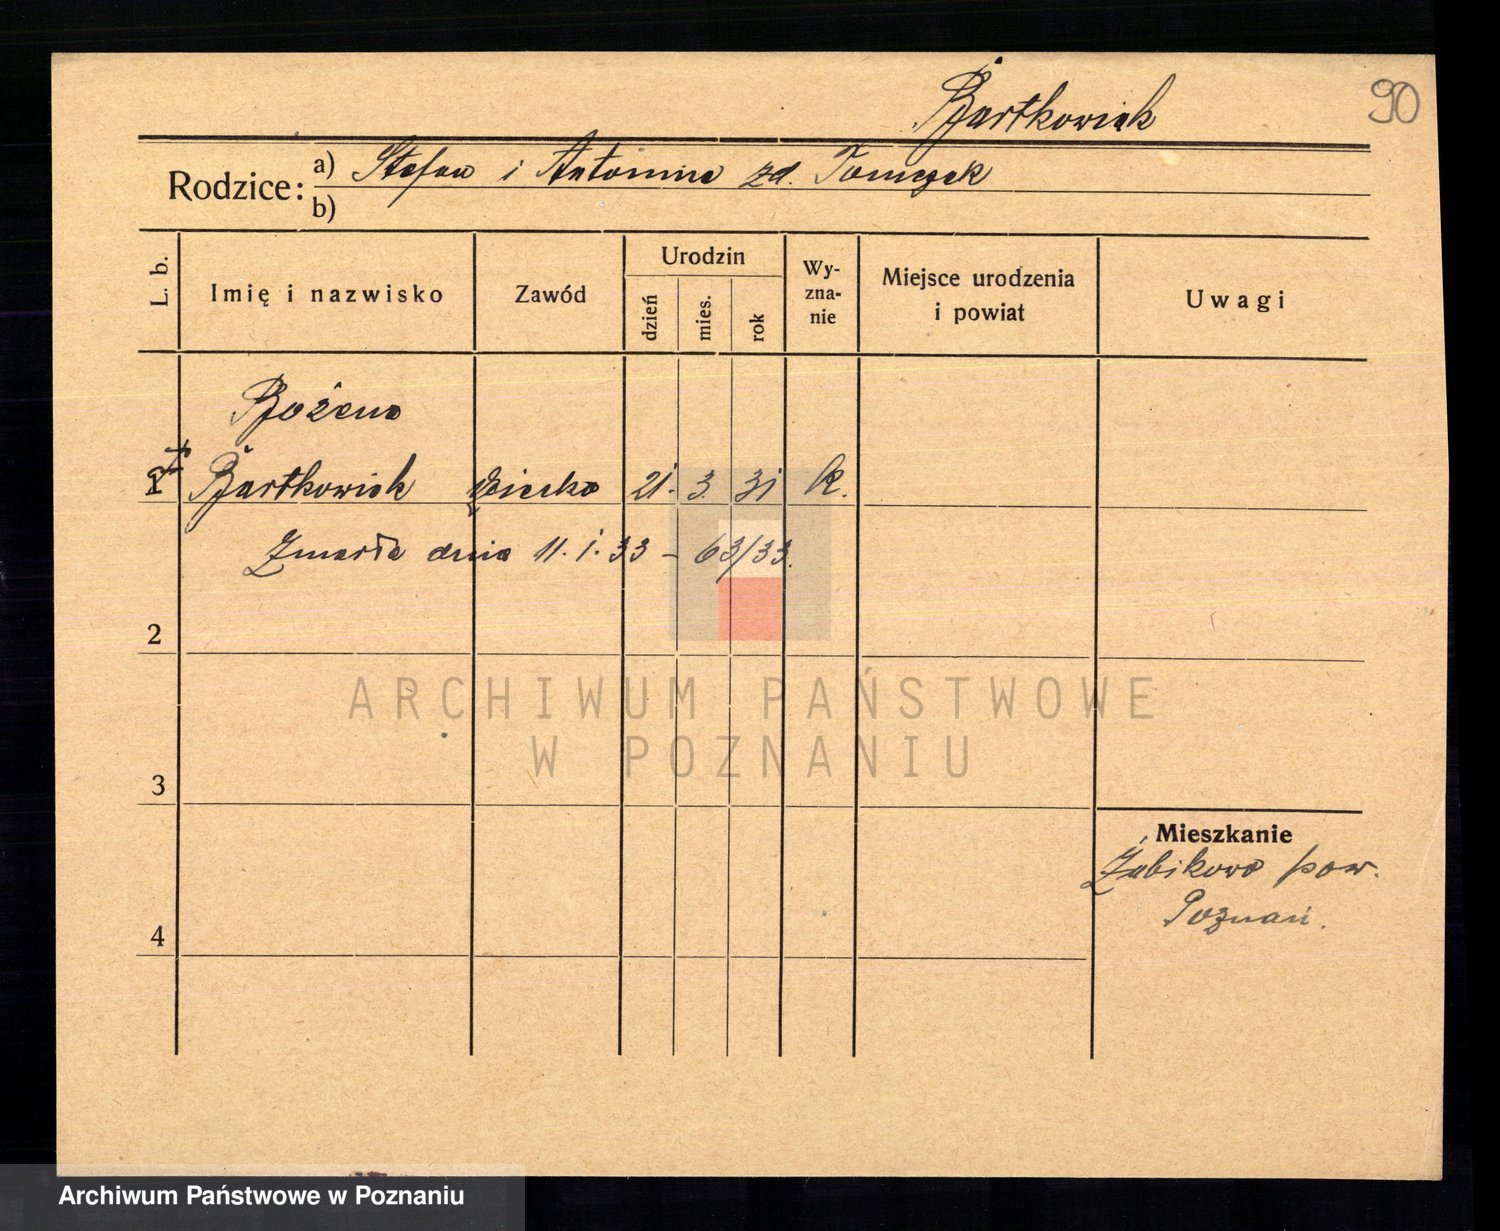 Bartkowiak
90
Rodzice: a) Stefan i Antonina zd. Tomczak
b)
L. b. Imię i nazwisko Zawód Urodzin dzień mies. rok Wy-zna-nie Miejsce urodzenia i powiat Uwagi
Bożena
1 Bartkowiak dziecko 21. 3. 31 k.
Zmarła dnia 11.1.33 – 63/33.
2
ARCHIWUM PAŃSTWOWE
W POZNANIU
3
Mieszkanie
Żabikowo pow.
Poznań.
4
Archiwum Państwowe w Poznaniu